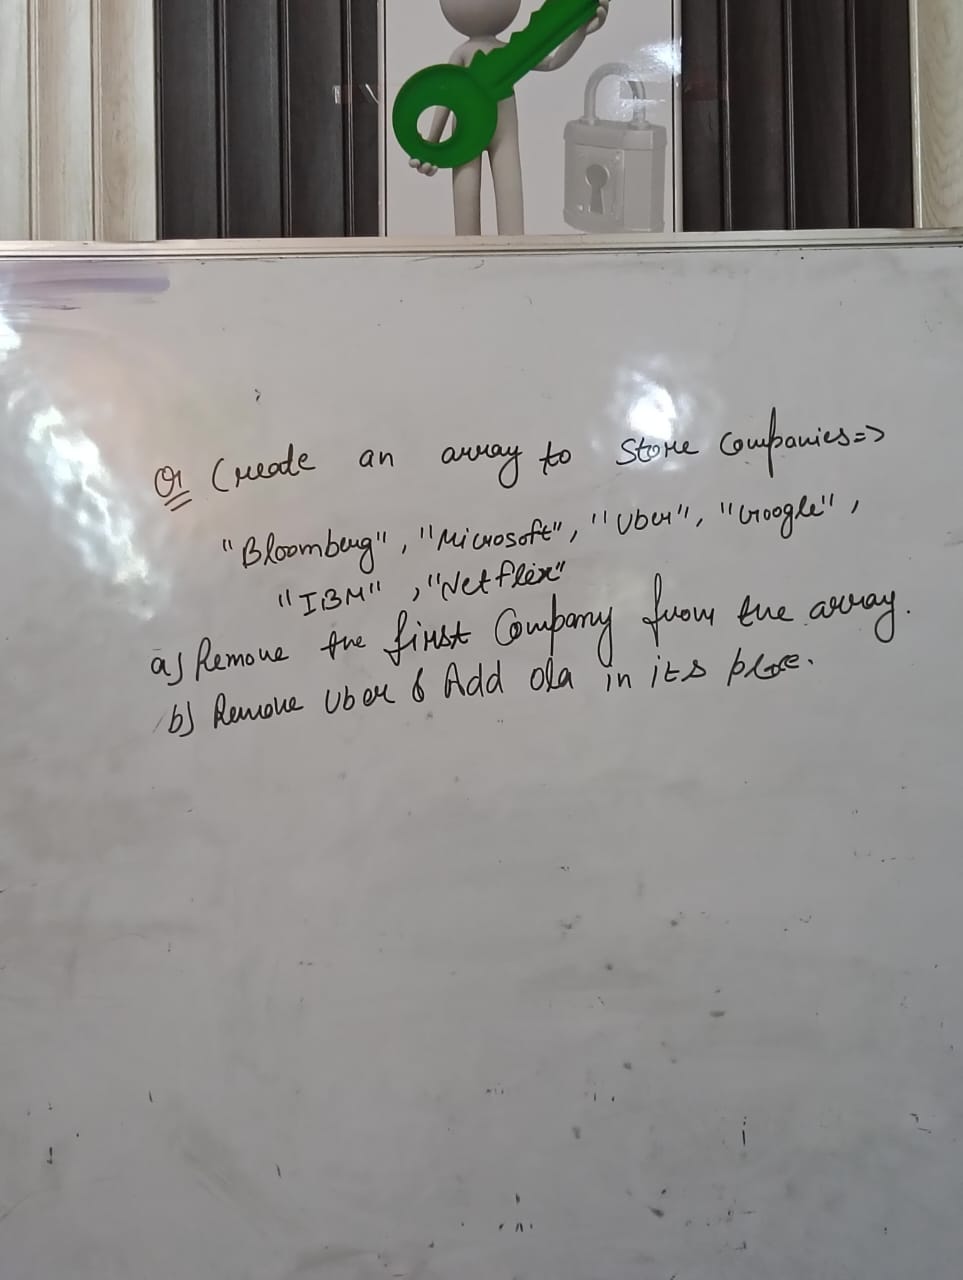 Q1 Create an array to store Companies=>
"Bloomberg", "Microsoft", "Uber", "Google",
"IBM", "Netflix"
a) Remove the first Company from the array.
b) Remove Uber & Add ola in its place.